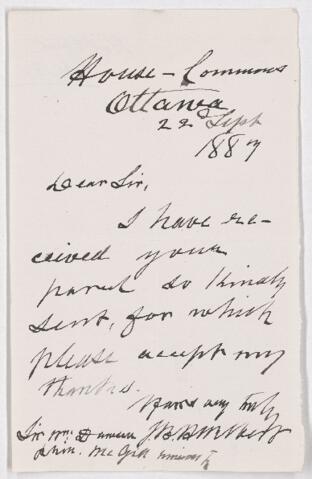 House - Commons
Ottawa
22 Sept
1887
Dear Sir,
I have re-
ceived your
parcel so kindly
sent, for which
please accept my
thanks.
Yours very truly
Sir Wm Dawson
McGill